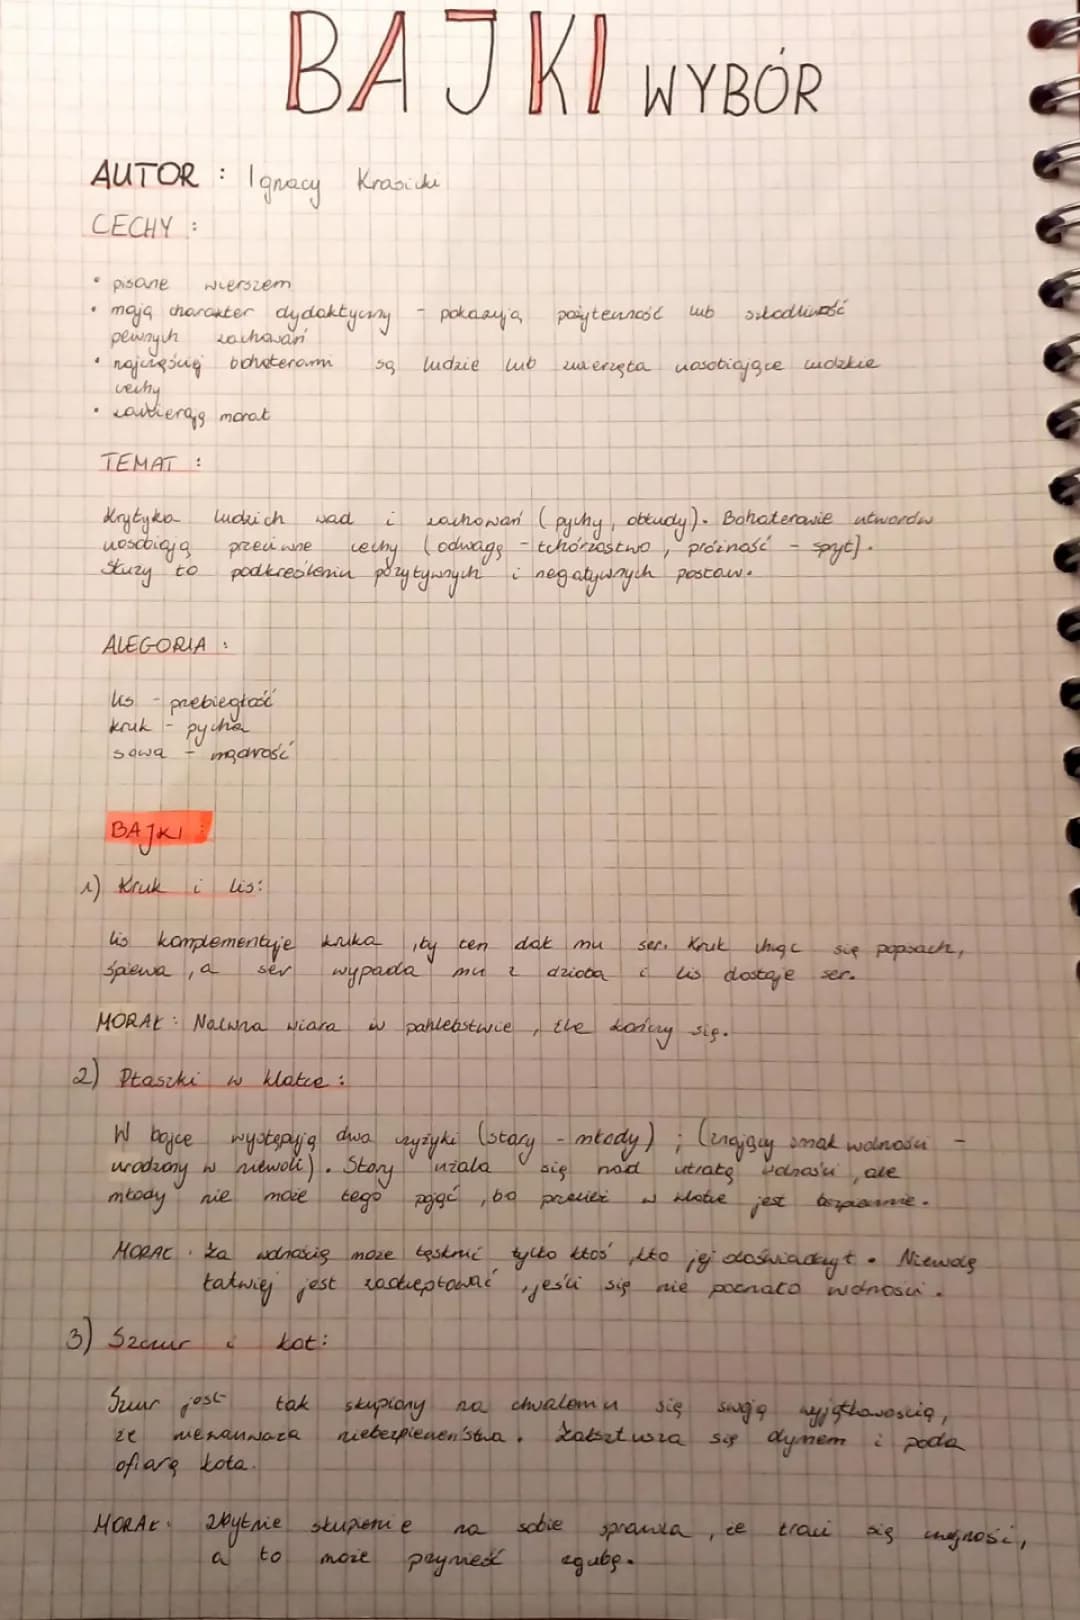 BAJKI WYBÓR
AUTOR : Ignacy Krasicki
CECHY :
• pisane wierszem
• mają charakter dydaktyczny - pokazują pożyteczność lub szkodliwość
pewnych zachowań
• najczęściej bohaterami są ludzie lub zwierzęta uosobiające ludzkie
cechy
• zawierają morał
TEMAT :
Krytyka ludzkich wad i zachowań (pychy, obłudy). Bohaterowie utworów
uosobiają przeciwne cechy (odwagę - tchórzostwo, próżność - spryt).
Służy to podkreśleniu pozytywnych i negatywnych postaw.
ALEGORIA :
lis - przebiegłość
kruk - pycha
sowa - mądrość
BAJKI :
1) Kruk i lis:
lis komplementuje kruka, by ten dał mu ser. Kruk chcąc się popisać,
śpiewa, a ser wypada mu z dzioba i lis dostaje ser.
MORAŁ: Naiwna wiara w pochlebstwie, źle kończy się.
2) Ptaszki w klatce :
W bajce występują dwa czyżyki (stary - młody) ; (znający smak wolności -
urodzony w niewoli). Stary użala się nad utratą wolności, ale
młody nie może tego pojąć, bo przecież w klatce jest bezpiecznie.
MORAŁ: Za wolnością może tęsknić tylko ktoś, kto jej doświadczył. Niewolę
łatwiej jest zaakceptować, jeśli się nie poznało wolności.
3) Szczur i kot:
Szczur jest tak skupiony na chwaleniu się swoją wyjątkowością,
że niezauważa niebezpieczeństwa. Zakrztusza się dymem i pada
ofiarą kota.
MORAŁ: Zbytnie skupienie na sobie sprawia, że traci się czujność,
a to może przynieść zgubę.